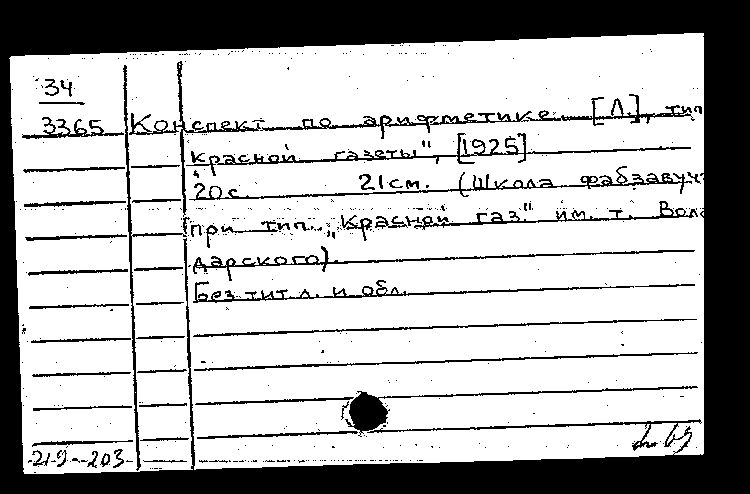 34
3365 Конспект по арифметике. [Л.], тип
„Красной газеты", [1925].
20с. 21см. (Школа фабзавуч
при тип. „Красной газ." им. т. Воло
дарского).
Без тит л. и обл.
-219--203-